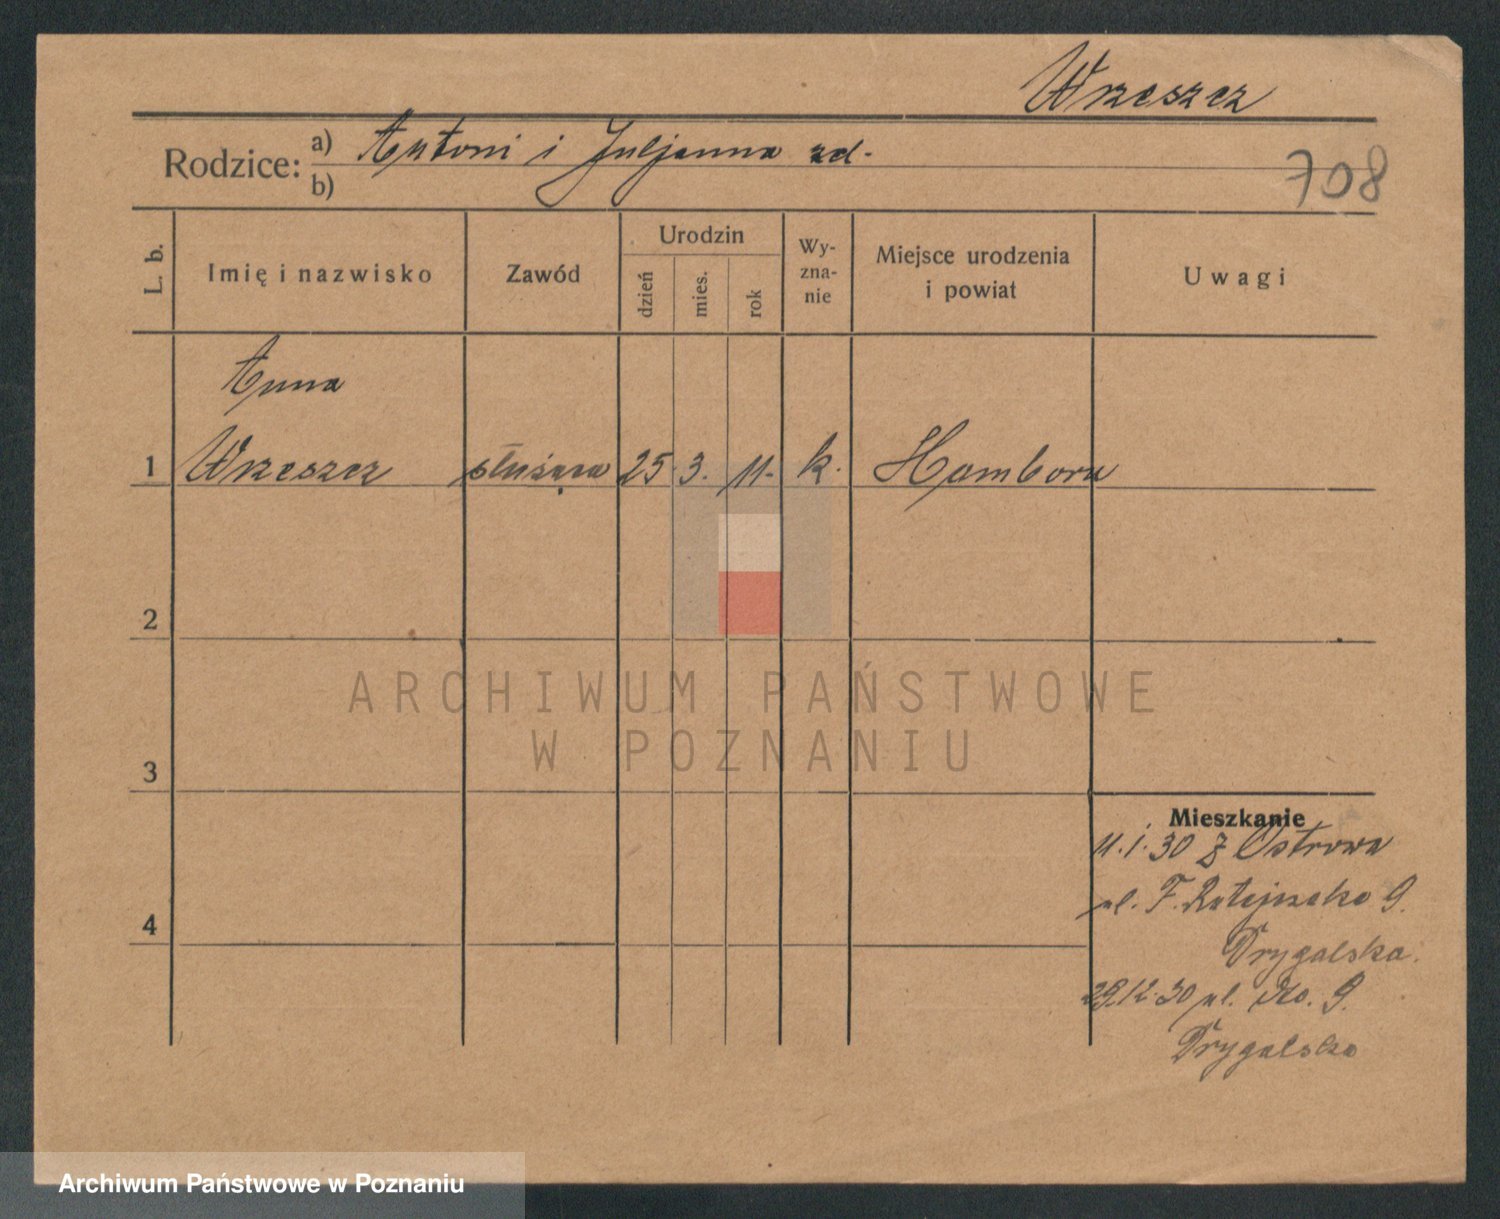 Wrzeszcz
Rodzice: a) Antoni i Juljanna zd.
b)
708
L. b. Imię i nazwisko Zawód Urodzin dzień mies. rok Wy-zna-nie Miejsce urodzenia i powiat Uwagi
Anna
1 Wrzeszcz służąca 25. 3. 11. k. Hamborn
2
ARCHIWUM PAŃSTWOWE
W POZNANIU
3
Mieszkanie
11.1.30 z Ostrowa
4 ul. F. Ratajczaka 9.
Drygalska.
29.12.30 ul. 9.
Drygalska
Archiwum Państwowe w Poznaniu